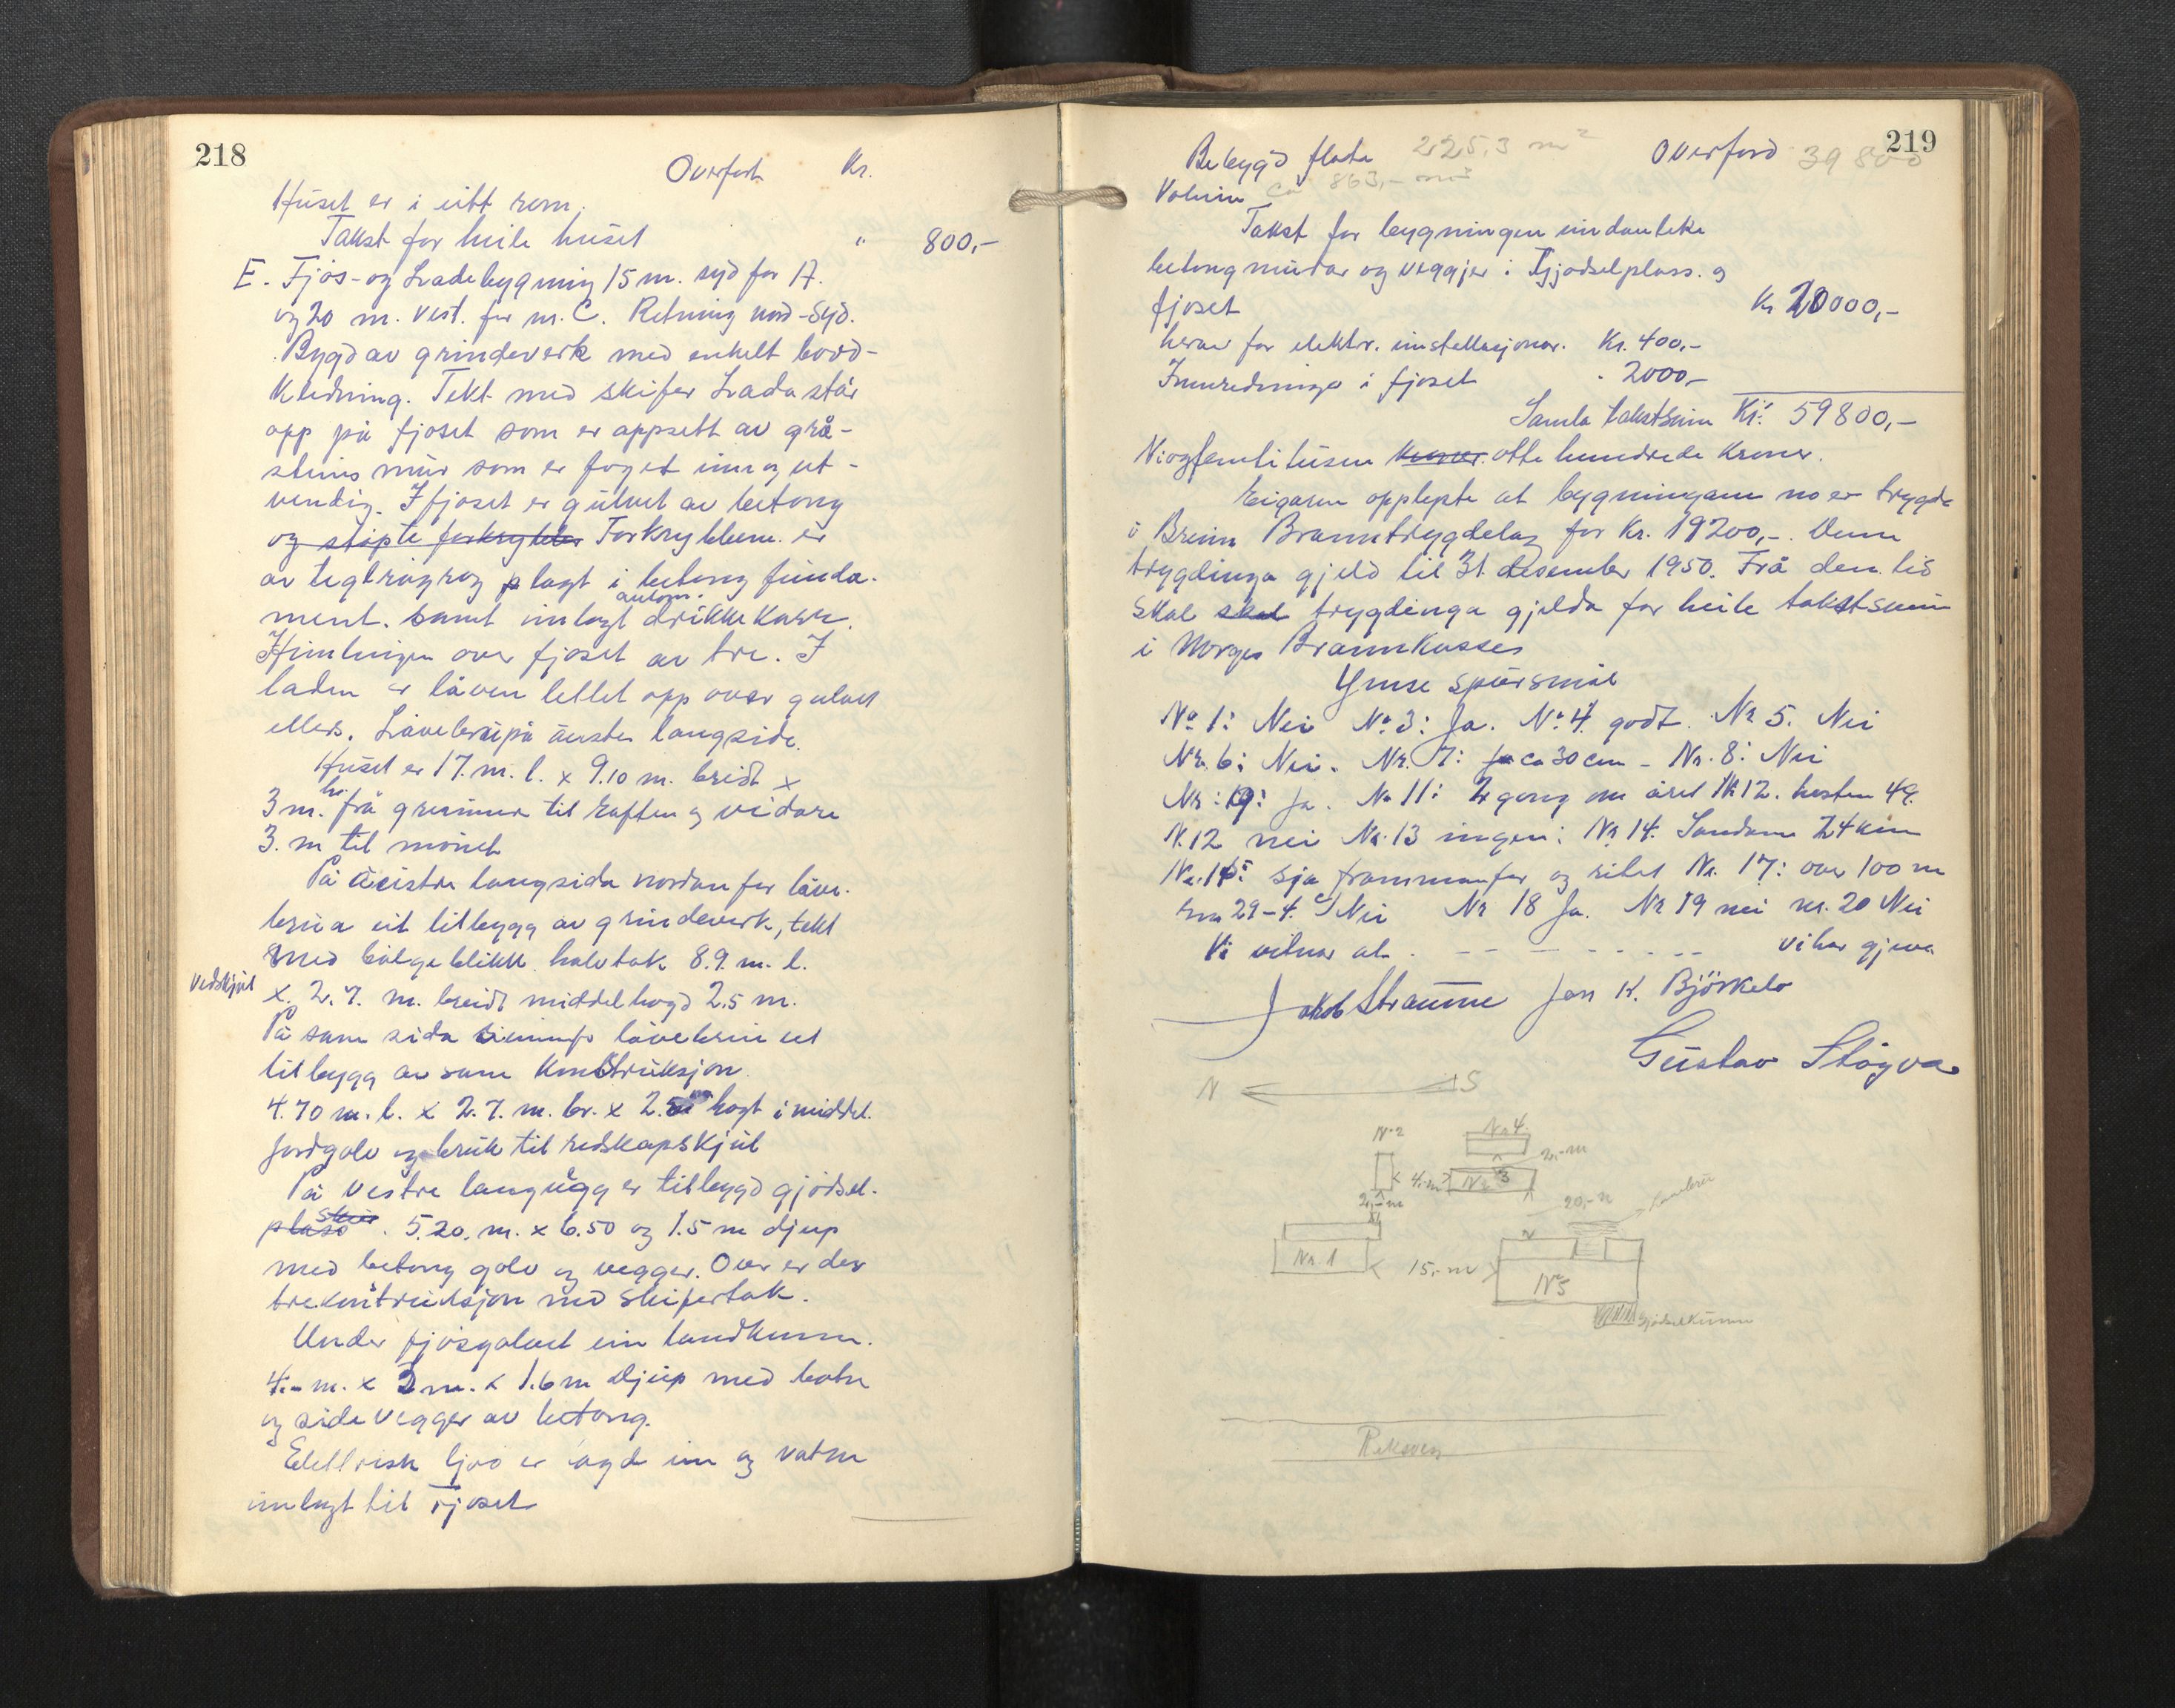 218
Overført Kr.
Huset er i eitt rom.
Takst for heile huset " 800,-
E. Fjøs- og Ladebygning 15 m. syd for A.
og 20 m. vest. for nr. C. Retning nord-Syd.
Bygd av grindverk med enkelt bord-
kledning. Tekt med skifer Lada står
opp på fjoset som er oppsett av grå-
steins mur som er foget inn og ut-
vendig. I fjoset er gulvet av betong
og støpte forkrybber Forkrybbene er
av teglrøyr lagt i betong funda-
ment. samt innlagt autom. drikkekarr.
Himlingen over fjoset av tre. I
laden er låven lettet opp over gulvet
ellers. Låvebru på austre langside.
Huset er 17. m. l. x 9.10 m. breidt x
3 m. hø. frå grunnmur til raften og vidare
3. m til mønet
På austre langsida nordanfor låve-
brua eit tilbygg av grindverk, tekt
med bølgeblikk halvtak 8.9. m. l.
Vedskjul x. 2.7. m. breidt middelhøgd 2.5 m.
På same sida låvebrui eit
tilbygg av same Konstruksjon.
4.70 m. l. x 2.7. m. br. x 2.5 m høgt i middel.
Jordgolv og bruk til redskapskjul
På vestre langvegg er tilbygd gjødsel-
plass. 5.20. m. x 6.50 og 1.5 m djup
med betong golv og vegger. Over er der
trekonstruksjon med skifertak.
Under fjøsgolvet ein landkum.
4.- m. x 3 m. x 1.6 m djup med botn
og side vegger av betong.
Elektrisk ljos er lagd inn og vatn
innlagt til Fjoset
219
Bebygd flate 225,3 m² Overførd 39 800
Volum ca 863,- m³
Takst for bygningen undanteke
betongmurar og veggjer i Gjødselplass. og
fjoset Kr 20000,-
herav for elektr. installasjonar. Kr. 400,-
Innreiinga i fjoset - 2000,-
Samla takstsum Kr. 59800,-
Niogfemtitusen kroner. otte hundrede kroner.
Eigaren opplyste at bygningane no er trygda
i Breim Branntrygdelag for Kr. 19200,-. Denne
trygdinga gjeld til 31. desember 1950. Frå den tid
skal skal trygdinga gjelda for heile takstsum
i Norges Brannkasse
Ymse spursmål
Nr 1: Nei Nr 3: Ja. Nr 4. godt. Nr 5. Nei
Nr. 6: Nei. Nr. 7: ca 30 cm - Nr. 8: Nei
Nr: 9: Ja. Nr 11: 2 gong om året Nr 12. hosten 49.
Nr. 12 nei Nr. 13 ingen: Nr 14. Sandane 24 km
Nr. 15: Sjå frammanfor og riset Nr. 17: over 100 m
29-4. c/ Nei Nr 18 Ja. Nr 19 nei nr. 20 Nei
Vi vitnar at - - - - - - - vi har gjeve
Jakob Straume Jon K. Bjørkelo
Gustav Støyva
N S
Nr 2 Nr 4.
2,- m
4,- m Nr 3
2,- m 20,- m Laavebru
Nr. 1 15,- m Nr 5
Gjødselkumme
Riksveg